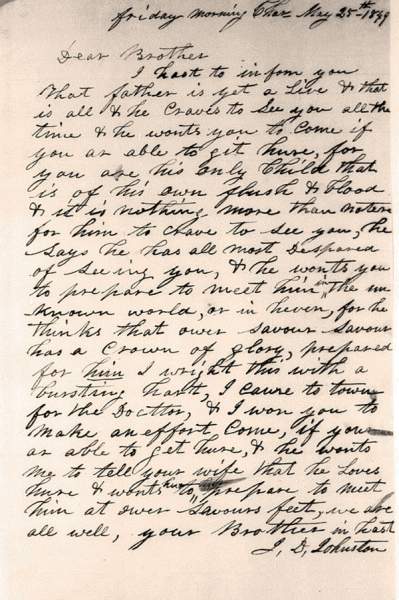 friday morning Char May 25th 1849
Dear Brother
I hast to infom you
that father is yet a Live & that
is all & he Craves to See you all the
time & he wonts you to Come if
you ar able to git hure, for
you are his only Child that
is of his own flush & blood
& it is nothing more than nature
for him to Crave to see you, he
says he has all most Despared
of Seeing you, & he wonts you
to prepare to meet him in the un
known world, or in heven, for he
thinks that ower savour Savour
has a Crown of glory, prepared
for him I wright this with a
bursting hart, I caure to town
for the Docttor, & I won you to
make an effort Come, if you
ar able to get hure, & he wonts
me to tell your wife that he Loves
hure & wonts hur to prepare to meet
him at ower Savours feet, we are
all well, your Brother in hast
J, D, Johnston